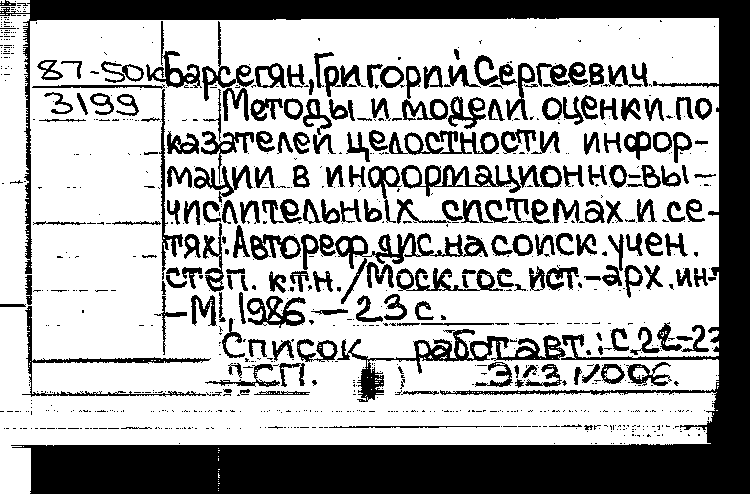 87-50к Барсегян, Григорий Сергеевич.
3199 Методы и модели оценки по-
казателей целостности инфор-
мации в информационно-вы-
числительных системах и се-
тях: Автореф. дис. на соиск. учен.
степ. к.т.н. / Моск. гос. ист.-арх. ин-т
-М., 1986. - 23 с.
Список работ авт.: с. 22-23
ДСП. Экз. №006.